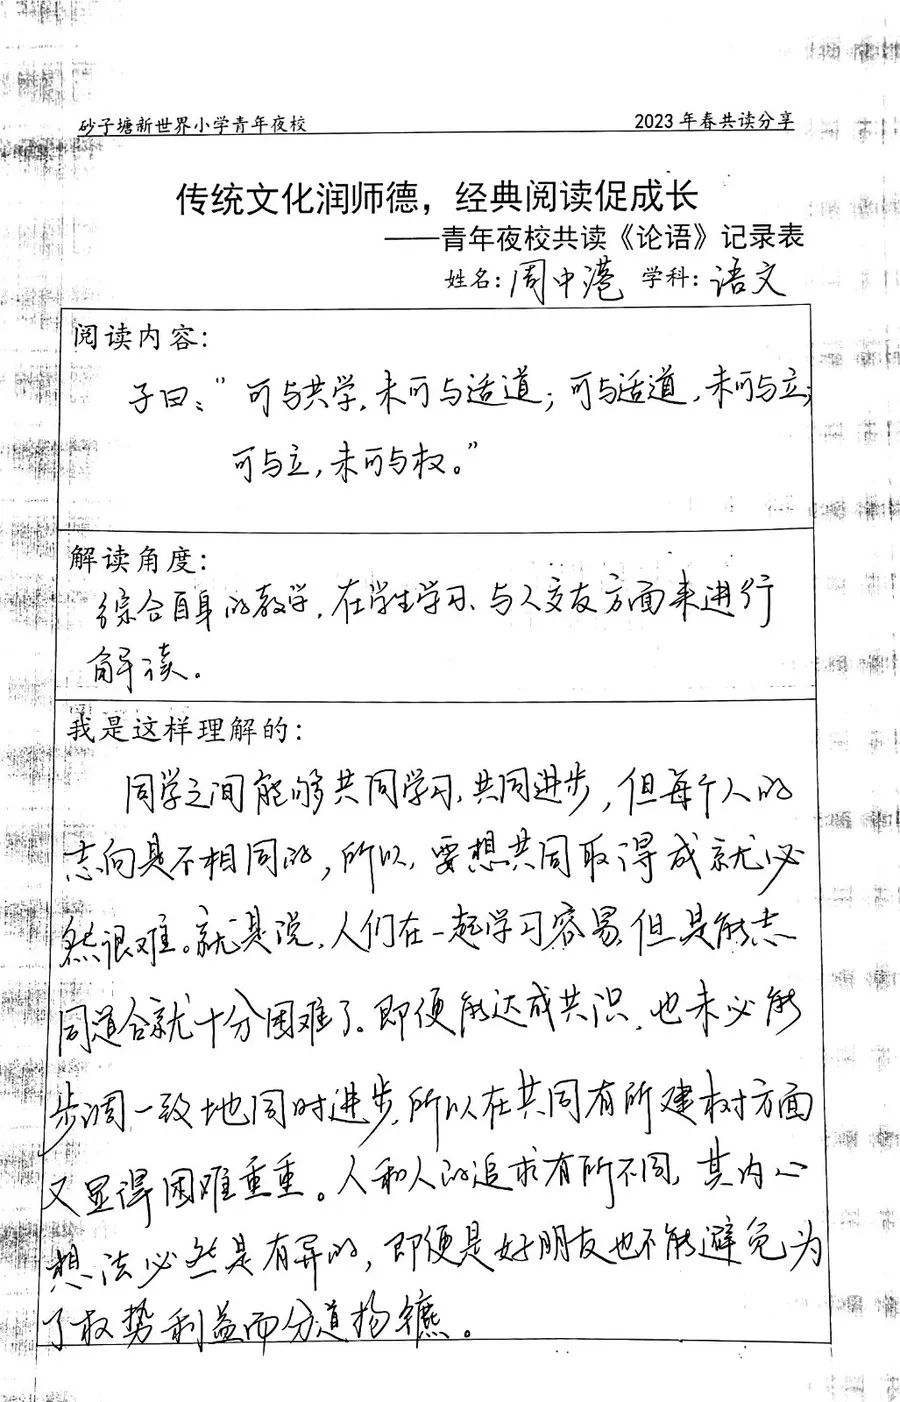 砂子塘新世界小学青年夜校 2023年春共读分享
传统文化润师德，经典阅读促成长
——青年夜校共读《论语》记录表
姓名：周中港 学科：语文
阅读内容：
子曰：“可与共学，未可与适道；可与适道，未可与立；
可与立，未可与权。”
解读角度：
综合自身的教学，在学生学习、与人交友方面来进行
解读。
我是这样理解的：
同学之间能够共同学习，共同进步，但每个人的
志向是不相同的，所以，要想共同取得成就必
然很难。就是说，人们在一起学习容易，但是能志
同道合就十分困难了。即便能达成共识，也未必能
步调一致地同时进步，所以在共同有所建树方面
又显得困难重重。人和人的追求有所不同，其内心
想法必然是有异的，即便是好朋友也不能避免为
了权势利益而分道扬镳。